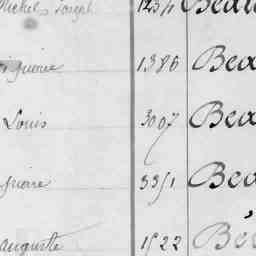 Michel Joseph 1234 Beau
pierre 1386 Bea
Louis 3097 Bea
pierre 3351 Bea
auguste 1522 Bé